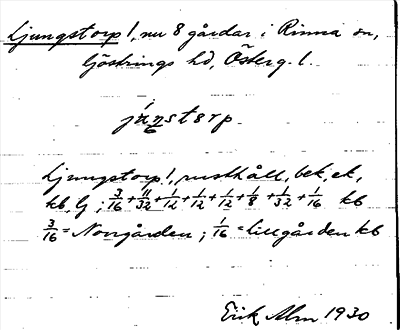 Ljungstorp!, nu 8 gårdar i Rinna sn,
Göstrings hd, Österg. l.
jùṉstərp
Ljungstorp!, rusthåll, bek, ek,
kb, G; 3/16 + 11/32 + 1/12 + 1/12 + 1/12 + 1/8 + 1/32 + 1/16 kb
3/16 = Norrgården; 1/16 = Lillgården kb
Erik Alm 1930